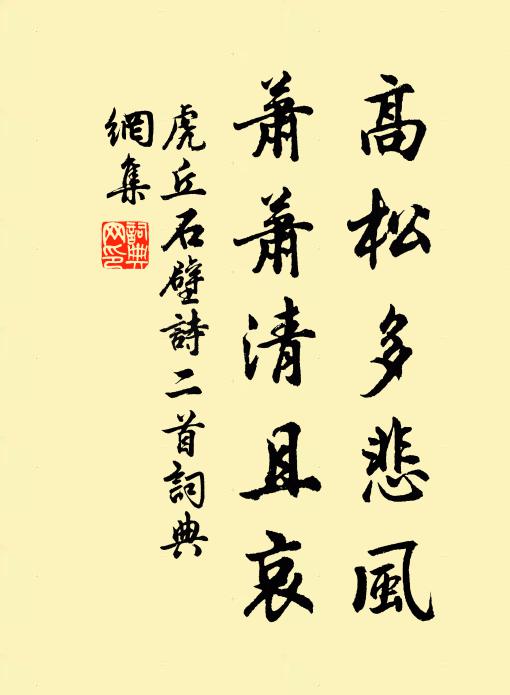 高松多悲風
蕭蕭清且哀
虎丘石壁詩二首詞典
網集
詞典
网印